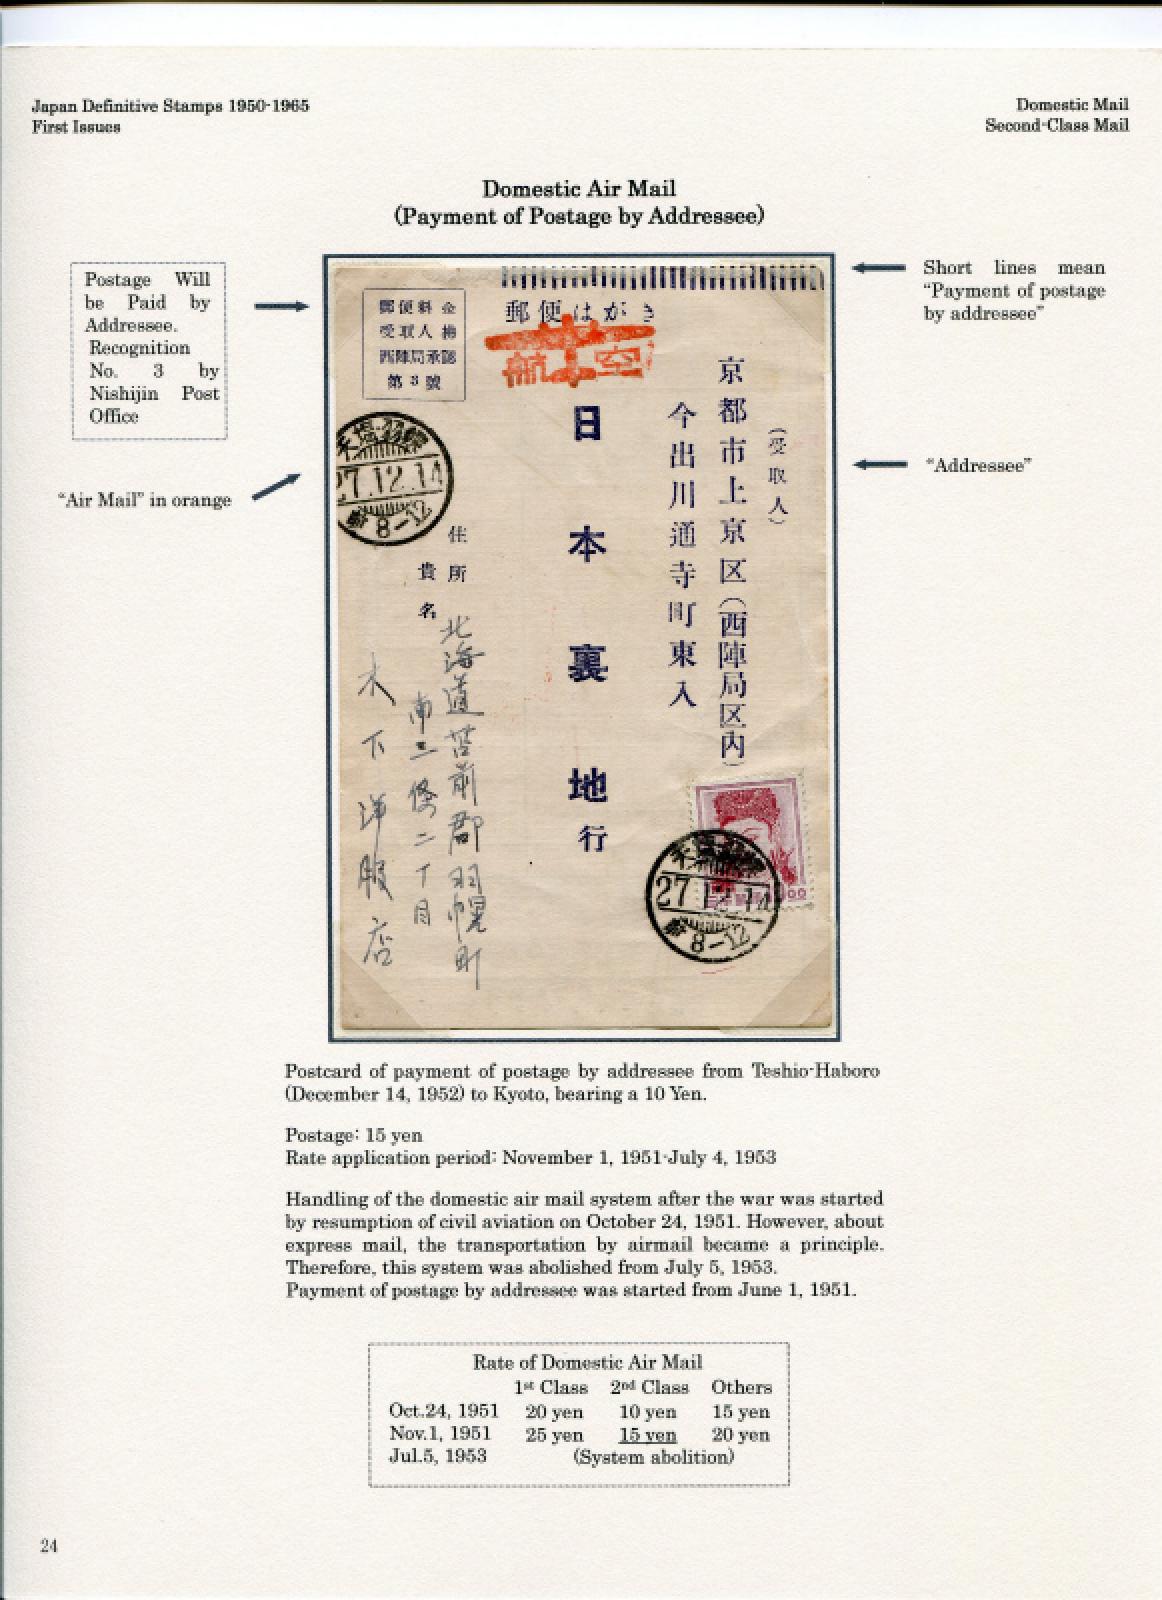 Japan Definitive Stamps 1950-1965
First Issues
Domestic Mail
Second-Class Mail
Domestic Air Mail
(Payment of Postage by Addressee)
Postage Will
be Paid by
Addressee.
Recognition
No. 3 by
Nishijin Post
Office
“Air Mail” in orange
Short lines mean
“Payment of postage
by addressee”
“Addressee”
郵便はがき
郵便料金
受取人拂
西陣局承認
第3號
航空
(受取人)
京都市上京区(西陣局区内)
今出川通寺町東入
日本裏地行
住所
貴名
北海道苫前郡羽幌町
南三條二丁目
木下洋服店
天塩羽幌
27.12.14
8-12
天塩羽幌
27.12.14
8-12
Postcard of payment of postage by addressee from Teshio-Haboro
(December 14, 1952) to Kyoto, bearing a 10 Yen.
Postage: 15 yen
Rate application period: November 1, 1951-July 4, 1953
Handling of the domestic air mail system after the war was started
by resumption of civil aviation on October 24, 1951. However, about
express mail, the transportation by airmail became a principle.
Therefore, this system was abolished from July 5, 1953.
Payment of postage by addressee was started from June 1, 1951.
Rate of Domestic Air Mail
1st Class 2nd Class Others
Oct.24, 1951 20 yen 10 yen 15 yen
Nov.1, 1951 25 yen 15 yen 20 yen
Jul.5, 1953 (System abolition)
24